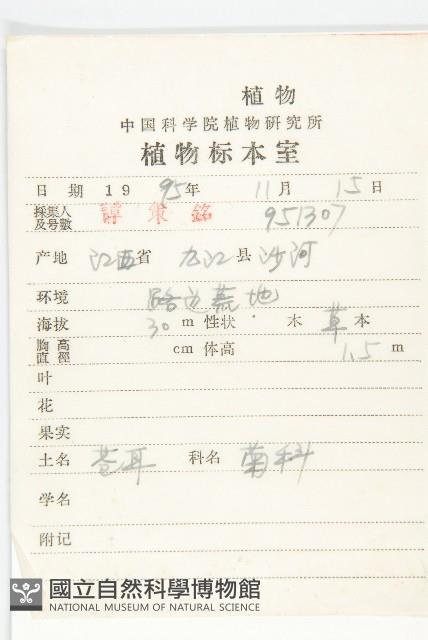 植物
中国科学院植物研究所
植物标本室
日期 1995年 11月 15日
採集人及号數 譚策銘 951307
产地 江西省 九江县 沙河
环境 路边荒地
海拔 30 m 性状 木 草本
胸高直徑 cm 体高 1.5 m
叶
花
果实
土名 苍耳 科名 菊科
学名
附记
國立自然科學博物館
NATIONAL MUSEUM OF NATURAL SCIENCE